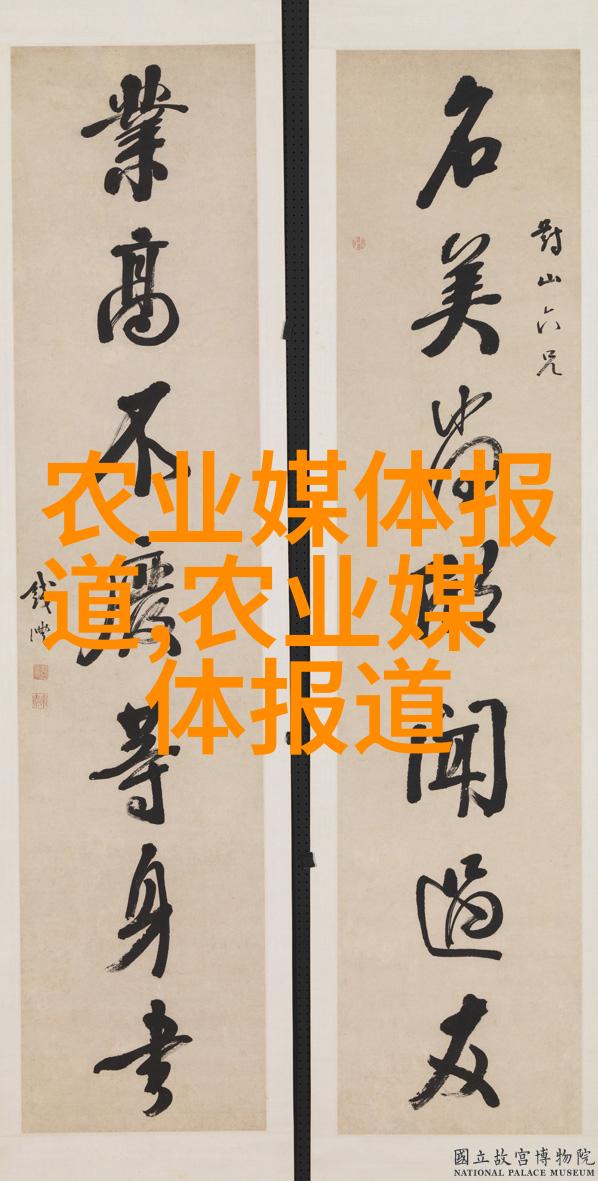 對山六兄
名美尚欣聞過友
業高不廢等身書
錢灃
农业媒体报
道,农业媒
体报道
國立故宮博物院
NATIONAL PALACE MUSEUM